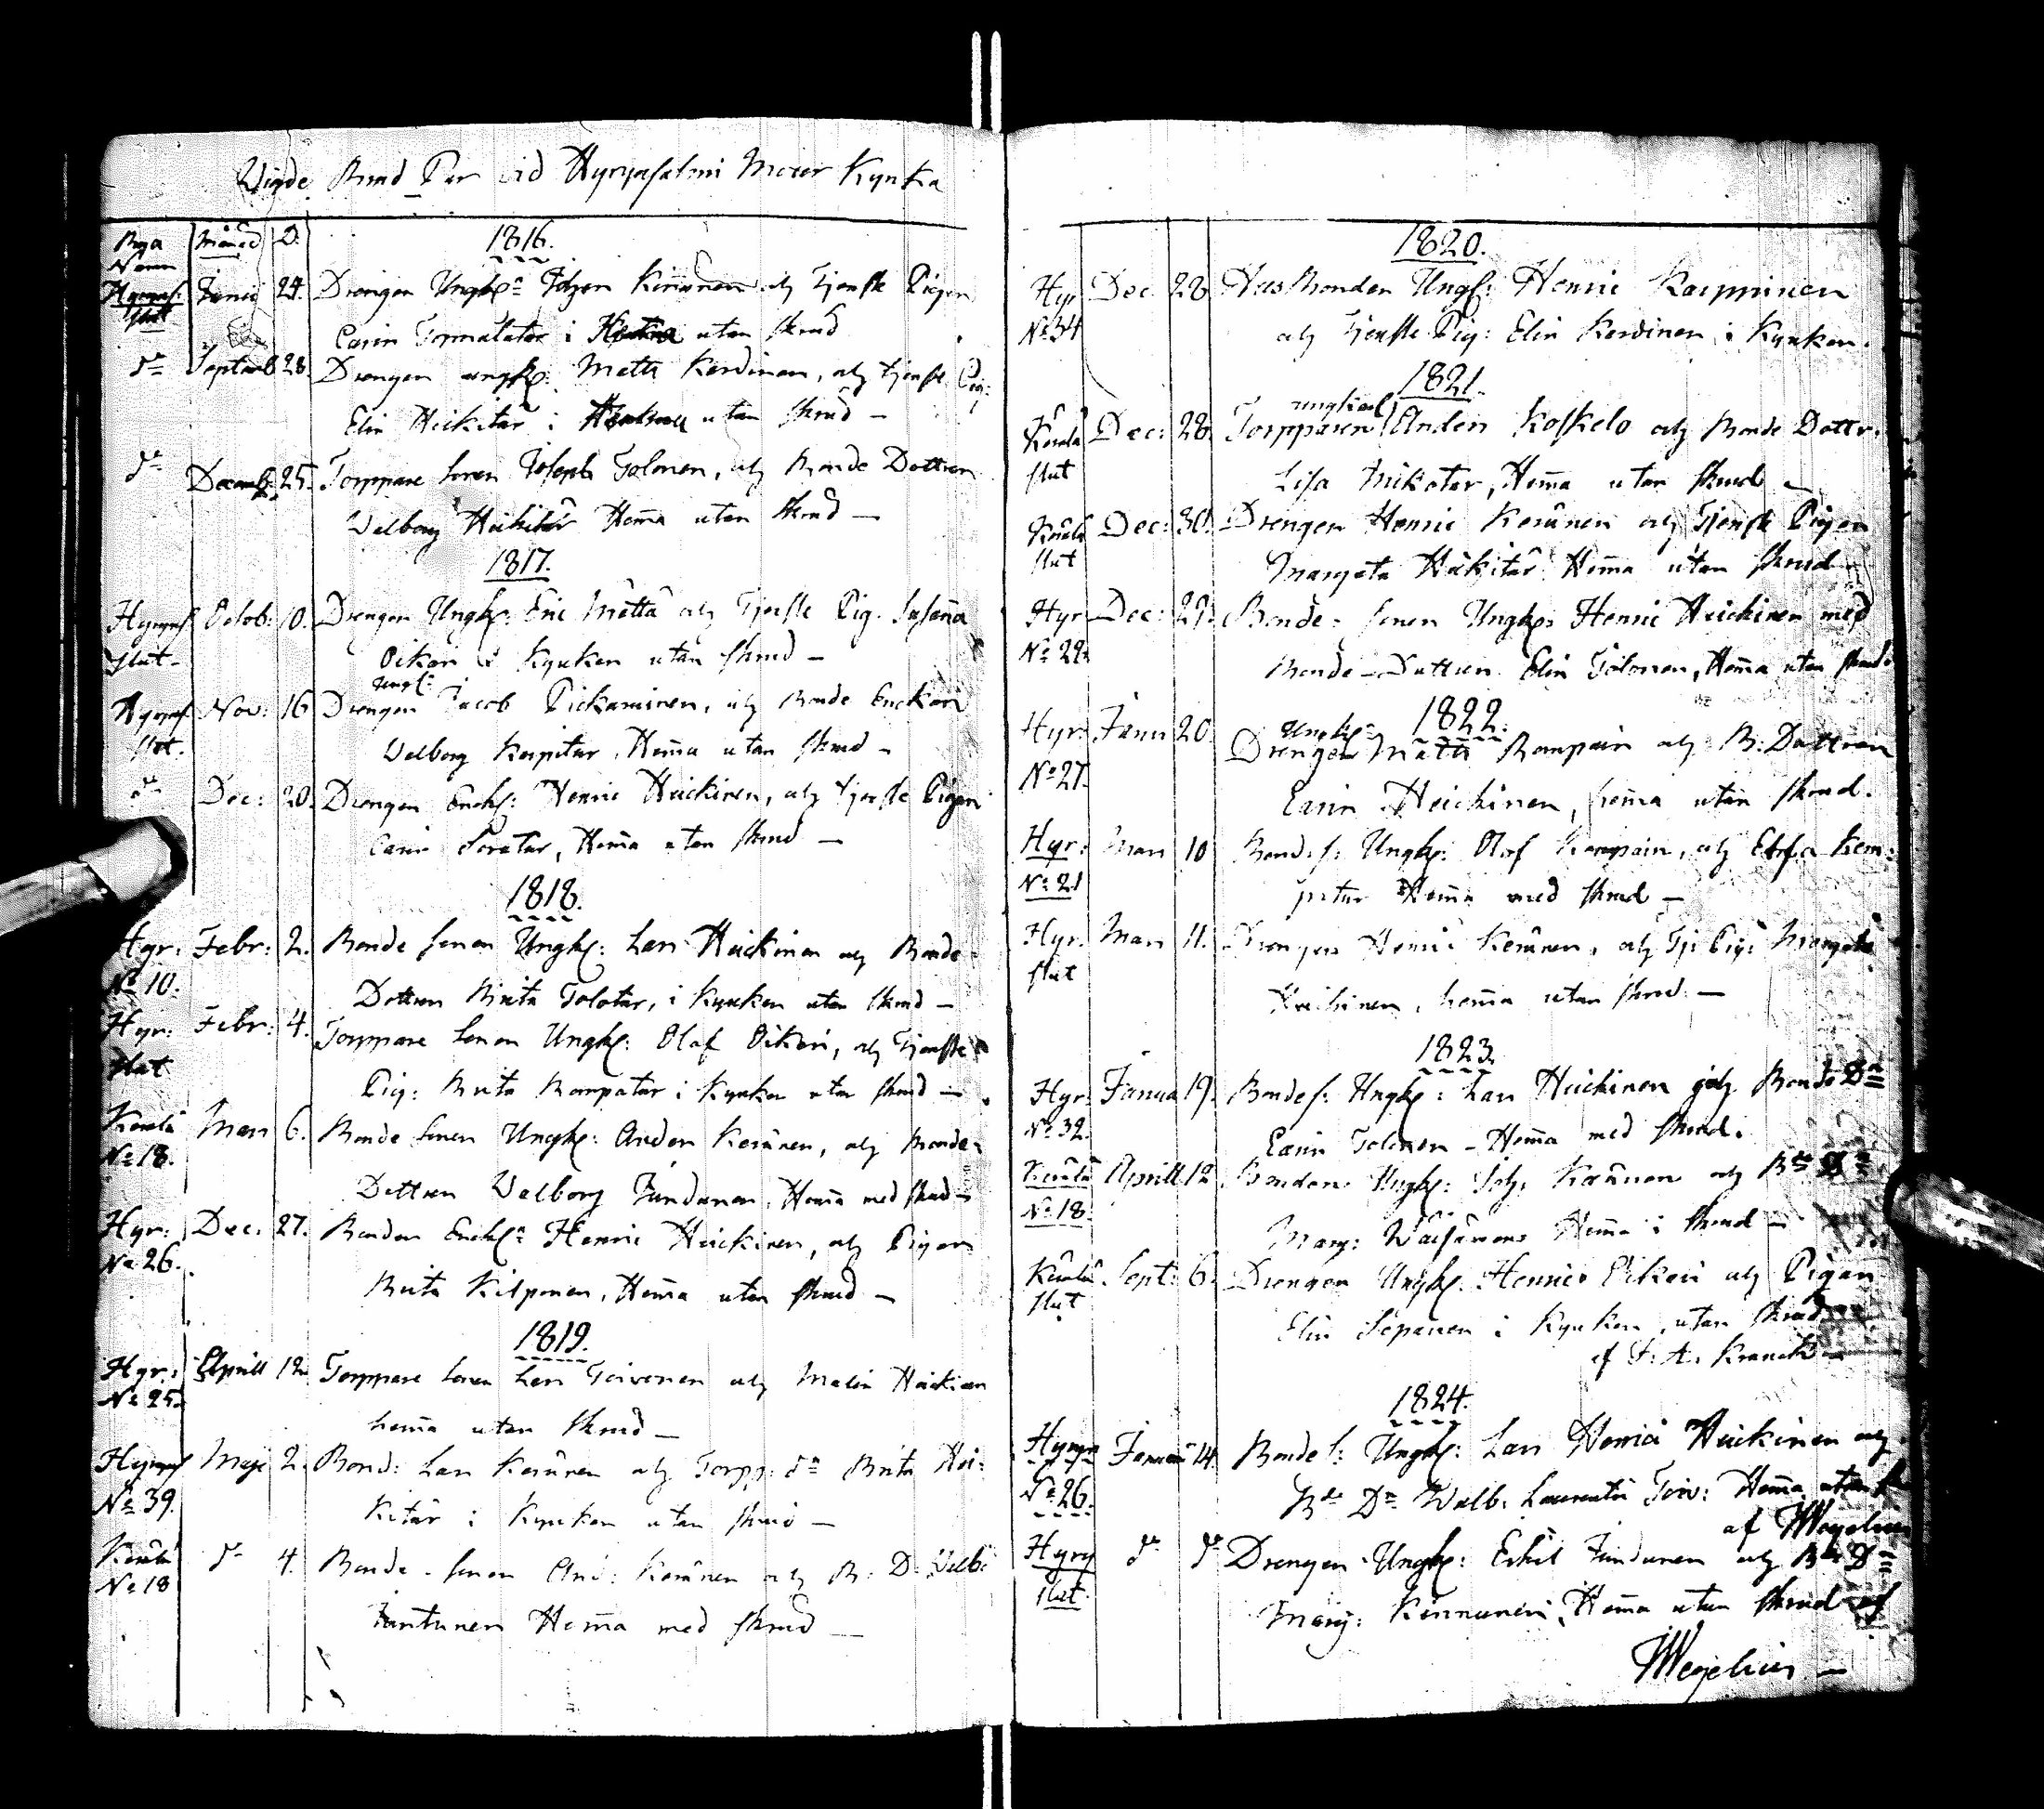 Vigde Brud Par vid Hyrynsalmi Moder Kyrka
Bya Namn Månad D.
1816.
Hyryns. slut Junii 24. Drengen Ungk: Johan Kinnunen och Tjenste Pigen
Carin Tormälätär i utan skrud
do Septemb 28. Drengen ungk: Matts Keränen, och tjenste Pig:
Elin Heikitär i utan skrud –
do Decemb. 25. Torppare Sonen Joseph Tolonen, och Bonde Dottren
Walborg Heikitär Hema utan skrud –
1817.
Hyryns slut Octob: 10. Drengen Ungk: Eric Mätta och Tjenste Pig. Susanna
Oikari i Kyrkan utan skrud –
Ungk:
Hyryns slut. Nov: 16 Drengen Jacob Pickarainen, och Bonde Enckan
Walborg Karpitar, Hema utan skrud –
do Dec: 20. Drengen Enck: Henric Heickinen, och tjenste Pigan
Carin Soratar, Hema utan skrud –
1818.
Hyr: No 10. Febr: 2. Bonde Sonen Ungk: Lars Heickinen och Bonde
Dottren Brita Tolotar, i Kyrkan utan skrud –
Hyr: slut Febr: 4. Torppare Sonen Ungk: Olof Oikari, och Tjenste
Pig: Brita Kompatar i Kyrkan utan skrud –
Kerälä No 18. Mars 6. Bonde Sonen Ungk: Anders Keränen, och Bonde
Dottren Walborg Jundunen, Hema med skrud –
Hyr: No 26. Dec: 27. Bonden Enck: Henric Heickinen, och Pigan
Brita Kilponen, Hema utan skrud –
1819.
Hyr: No 25. Aprill 12 Torppare Sonen Lars Toivonen och Malin Heickinen
hema utan skrud –
Hyryns No 39. Maji 2. Bond: Lars Keränen och Torpp: dr Brita Hei-
kitär i Kyrkan utan skrud –
Kerälä No 18 do 4. Bonde-Sonen And: Keränen och B: D: Walb:
Juntunen Hema med skrud –
1820.
Hyr No 34 Dec 28 Husbonden Ungk: Henric Karppinen
och Tjenste Pig: Elin Kerdinen i Kyrkan.
1821.
ungkarl
Kerälä slut Dec: 28. Torpparen Anders Koskelo och Bonde Dottr.
Lisa Mikotar, Hema utan skrud –
Kerälä slut Dec: 30. Drengen Henric Keränen och Tjenste Pigan
Margeta Heikitär Hema utan skrud –
Hyr No 29. Dec: 29. Bonde-Sonen Ungk: Henric Heickinen med
Bonde-Dottren Elin Tolonen, Hema utan skrud.
1822.
Ungk:
Hyr: No 27. Janu 20. Drengen Matts Kompain och B: Dottren
Carin Heickinen, hema utan skrud.
Hyr: No 21 Mars 10 Bonds: Ungk: Olof Kompain, och Ebfa Kem-
petar Hema med skrud –
Hyr. slut Mars 11. Drengen Henric Keränen, och Tj: Pig: Margeta
Heikinen, hema utan skrud –
1823.
Hyr: No 32. Janua 19. Bondes: Ungk: Lars Heickinen och Bonde Dr
Carin Tolonen – Hema med skrud.
Kerälä No 18. Aprill 12 Bonden Ungk: Joh: Keränen och Bde Dr
Marg: Wäisänens Hema i skrud –
Kerälä slut Sept: 6. Drengen Ungk: Henric Oikari och Pigan
Elin Sepänen i Kyrkan, utan skrud
af J. A. Kranck –
1824.
Hyryn No 26. Januari 14. Bonde S: Ungk: Lars Henric Heickinen och
Bde Dr Walb: Laurentii Toiv: Hema utan s
af Wegelius
Hyry slut do do Drengen Ungk: Eskil Jundunen och Bde Dr
Marg: Kinnunen, Hema utan skrud af
Wegelius –